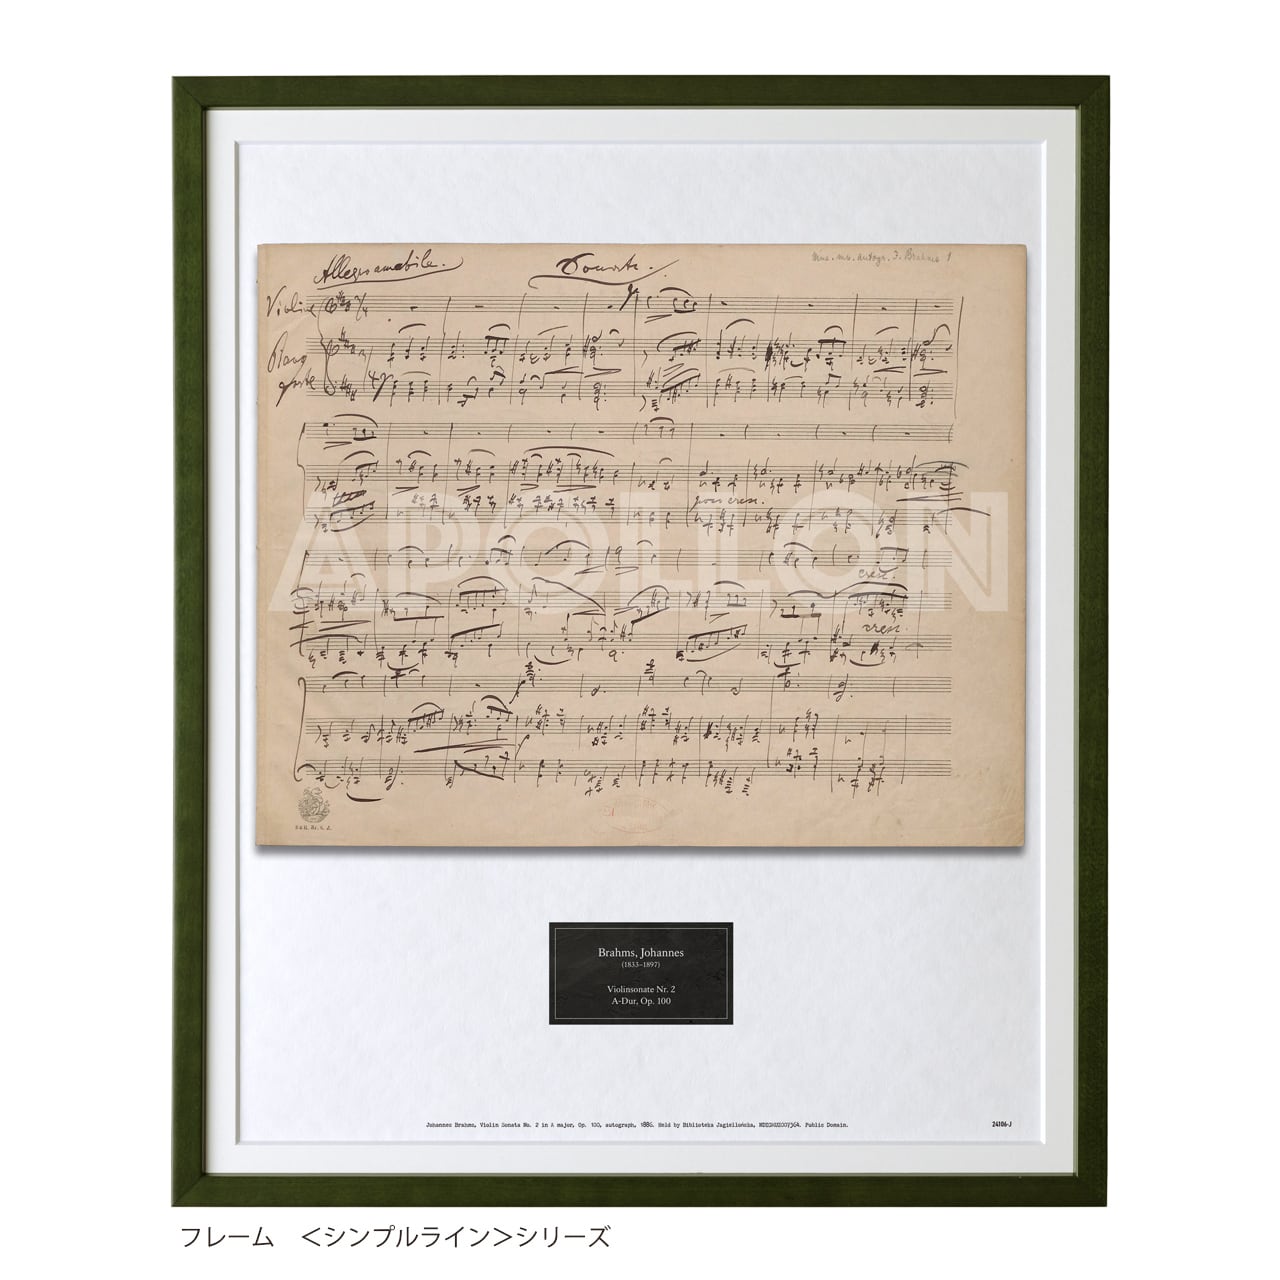 Allegro amabile. Sonate.
Mus. ms. autogr. J. Brahms 1
Violine
Piano
forte
poco cresc.
APOLLON
cresc.
cresc.
Brahms, Johannes
(1833–1897)
Violinsonate Nr. 2
A-Dur, Op. 100
Johannes Brahms, Violin Sonata No. 2 in A major, Op. 100, autograph, 1886. Held by Biblioteka Jagiellońska, Public Domain.
24106-J
フレーム <シンプルライン>シリーズ